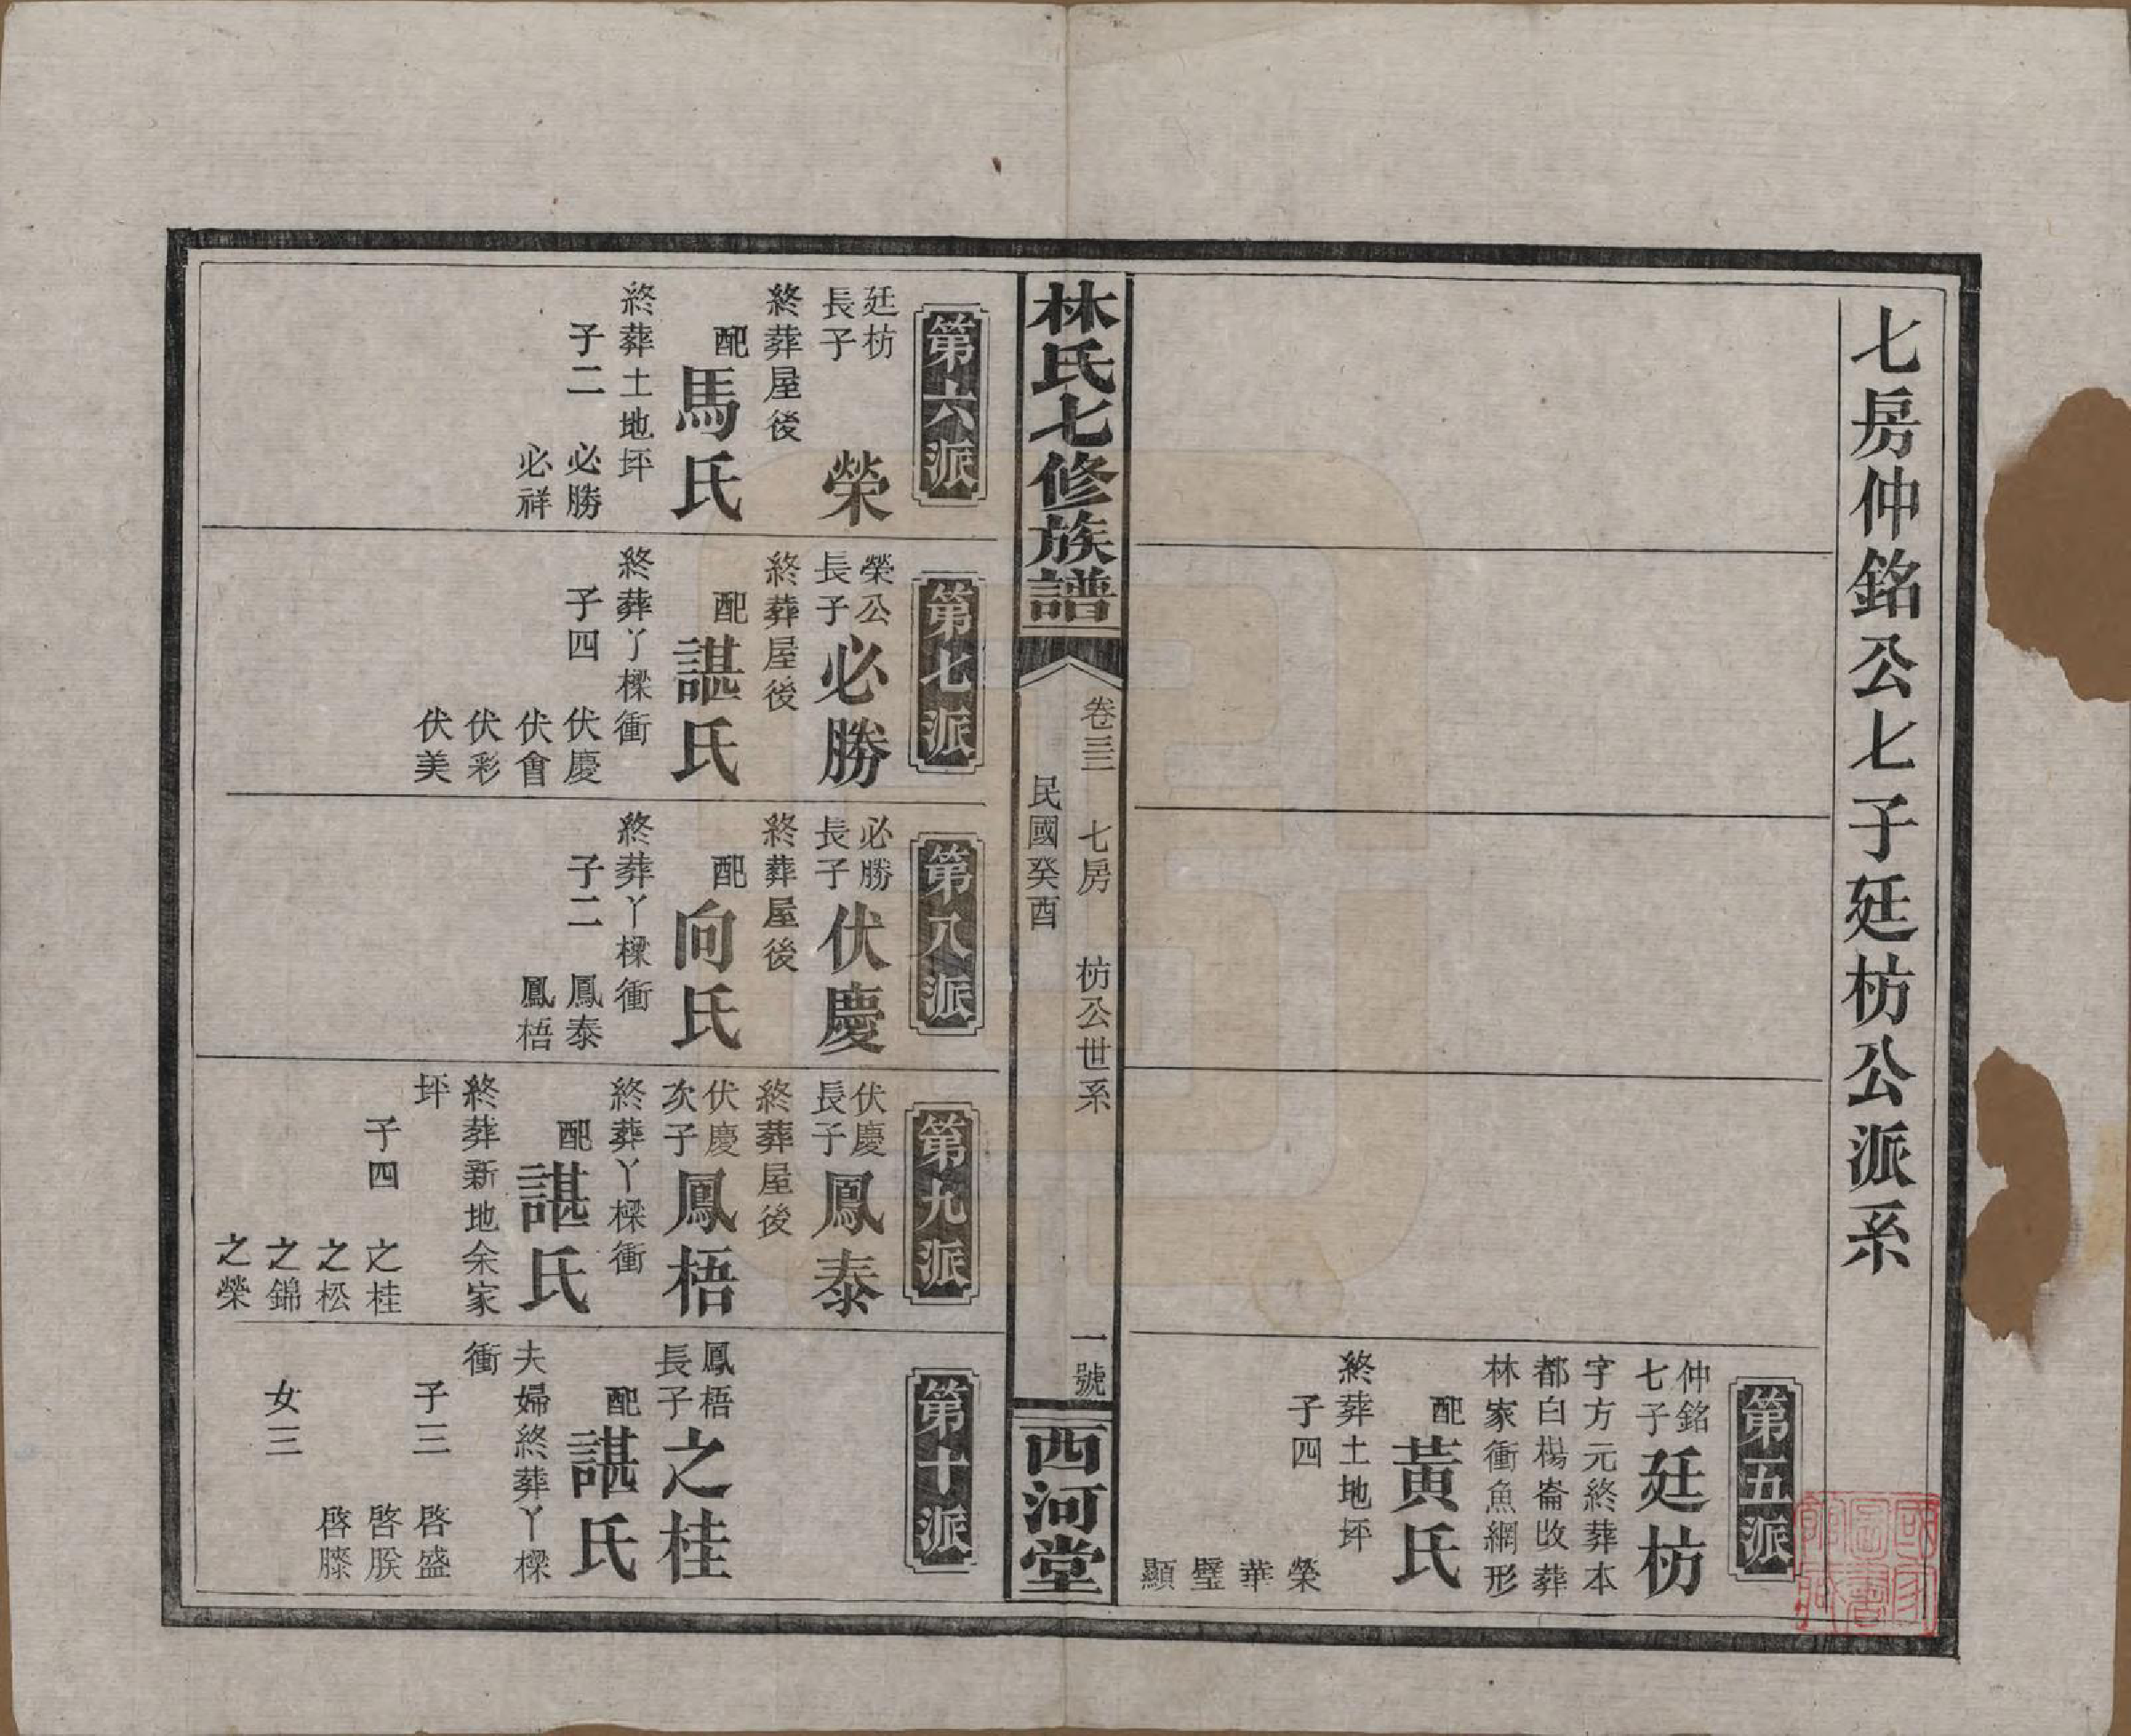 七房仲銘公七子廷枋公派系
第五派
仲銘
七子
廷枋
字方元終葬本
都白楊崙改葬
林家衝魚網形
配
黃氏
終葬土地坪
子四
榮
華
璧
顯
林氏七修族譜
卷三三 七房 枋公世系 一號
民國癸酉
西河堂
第六派
廷枋
長子
榮
終葬屋後
配
馬氏
終葬土地坪
子二
必勝
必祥
第七派
榮公
長子
必勝
終葬屋後
配
諶氏
終葬丫樑衝
子四
伏慶
伏會
伏彩
伏美
第八派
必勝
長子
伏慶
終葬屋後
配
向氏
終葬丫樑衝
子二
鳳泰
鳳梧
第九派
伏慶
長子
鳳泰
終葬屋後
伏慶
次子
鳳梧
終葬丫樑衝
配
諶氏
終葬新地余家
坪
子四
之桂
之松
之錦
之榮
第十派
鳳梧
長子
之桂
配
諶氏
夫婦終葬丫樑
衝
子三
啓盛
啓朕
啓賸
女三